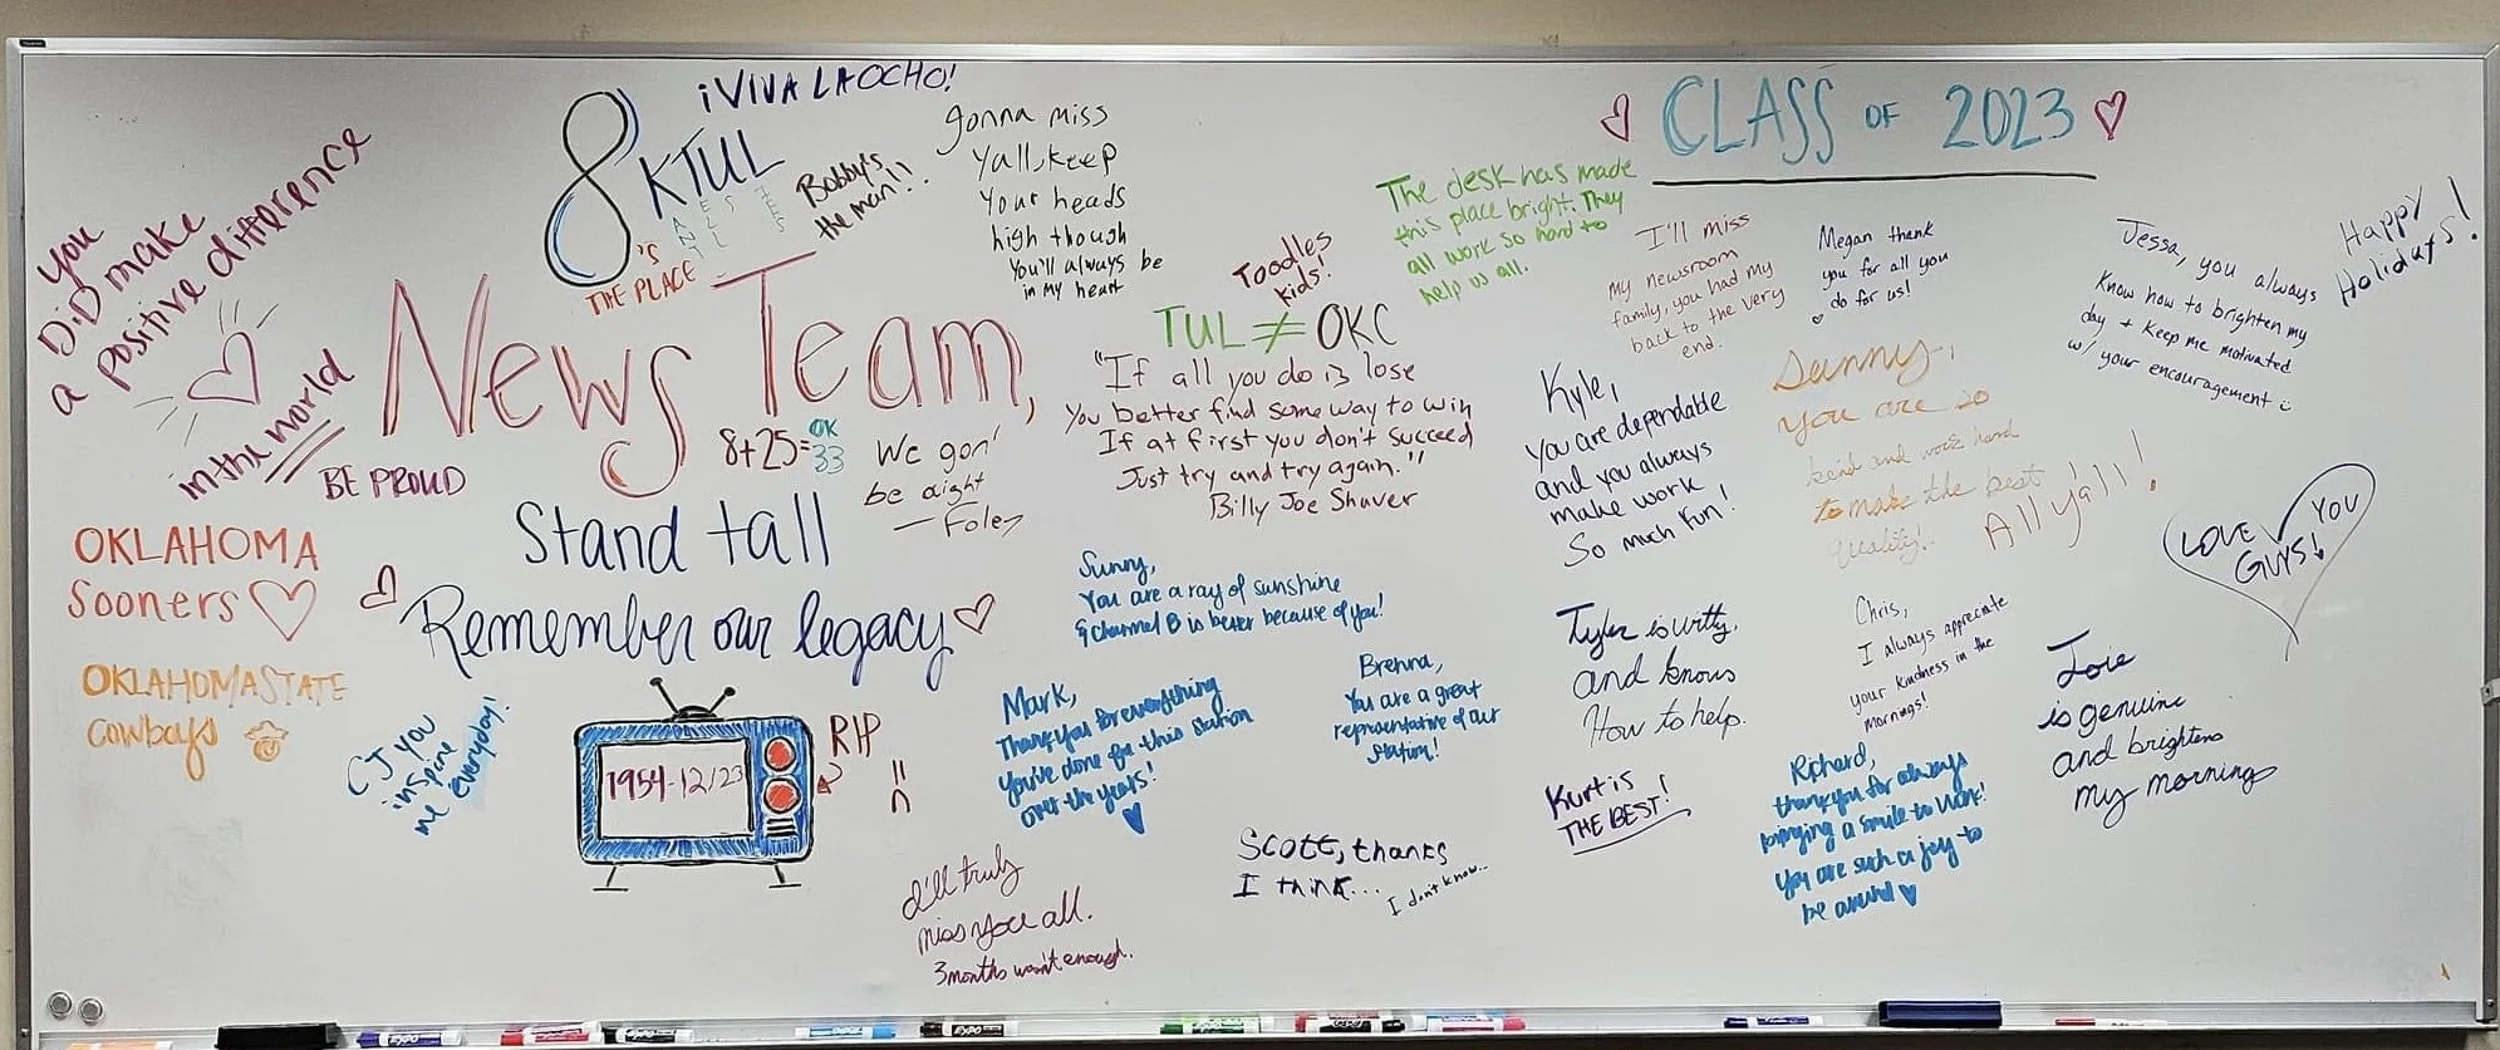 ¡VIVA LA OCHO!
8 KTUL
'S
THE PLACE
Bobby's
the man!!
gonna miss
Yall, keep
Your heads
high though
You'll always be
in my heart
CLASS OF 2023
You
DiD make
a positive difference
in the world
BE PROUD
News Team,
8+25=33
OK
We gon'
be aight
— Foley
Stand tall
Remember our legacy
OKLAHOMA
Sooners
OKLAHOMA STATE
Cowboys
CJ you
inspire
me everyday!
1954-12/23
RIP
Toodles
kids!
TUL ≠ OKC
"If all you do is lose
You better find some way to win
If at first you don't succeed
Just try and try again."
Billy Joe Shaver
The desk has made
this place bright. They
all work so hard to
help us all.
I'll miss
my newsroom
family, you had my
back to the very
end.
Megan thank
you for all you
do for us!
Jessa, you always
Know how to brighten my
day + keep me motivated
w/ your encouragement
Happy
Holidays!
Kyle,
You are dependable
and you always
make work
So much fun!
Sunny,
you are so
kind and work hard
to make the best
quality!
All y'all!
LOVE YOU
GUYS!
Sunny,
You are a ray of sunshine
& channel 8 is better because of you!
Mark,
Thank you for everything
you've done for this station
over the years!
Brenna,
You are a great
representative of our
station!
Tyler is witty,
and knows
How to help.
Chris,
I always appreciate
your kindness in the
mornings!
Kurt is
THE BEST!
Richard,
thank you for always
bringing a smile to work!
You are such a joy to
be around
is genuine
and brightens
my mornings
I'll truly
miss you all.
3 months wasn't enough.
Scott, thanks
I think...
I don't know...
EXPO
EXPO